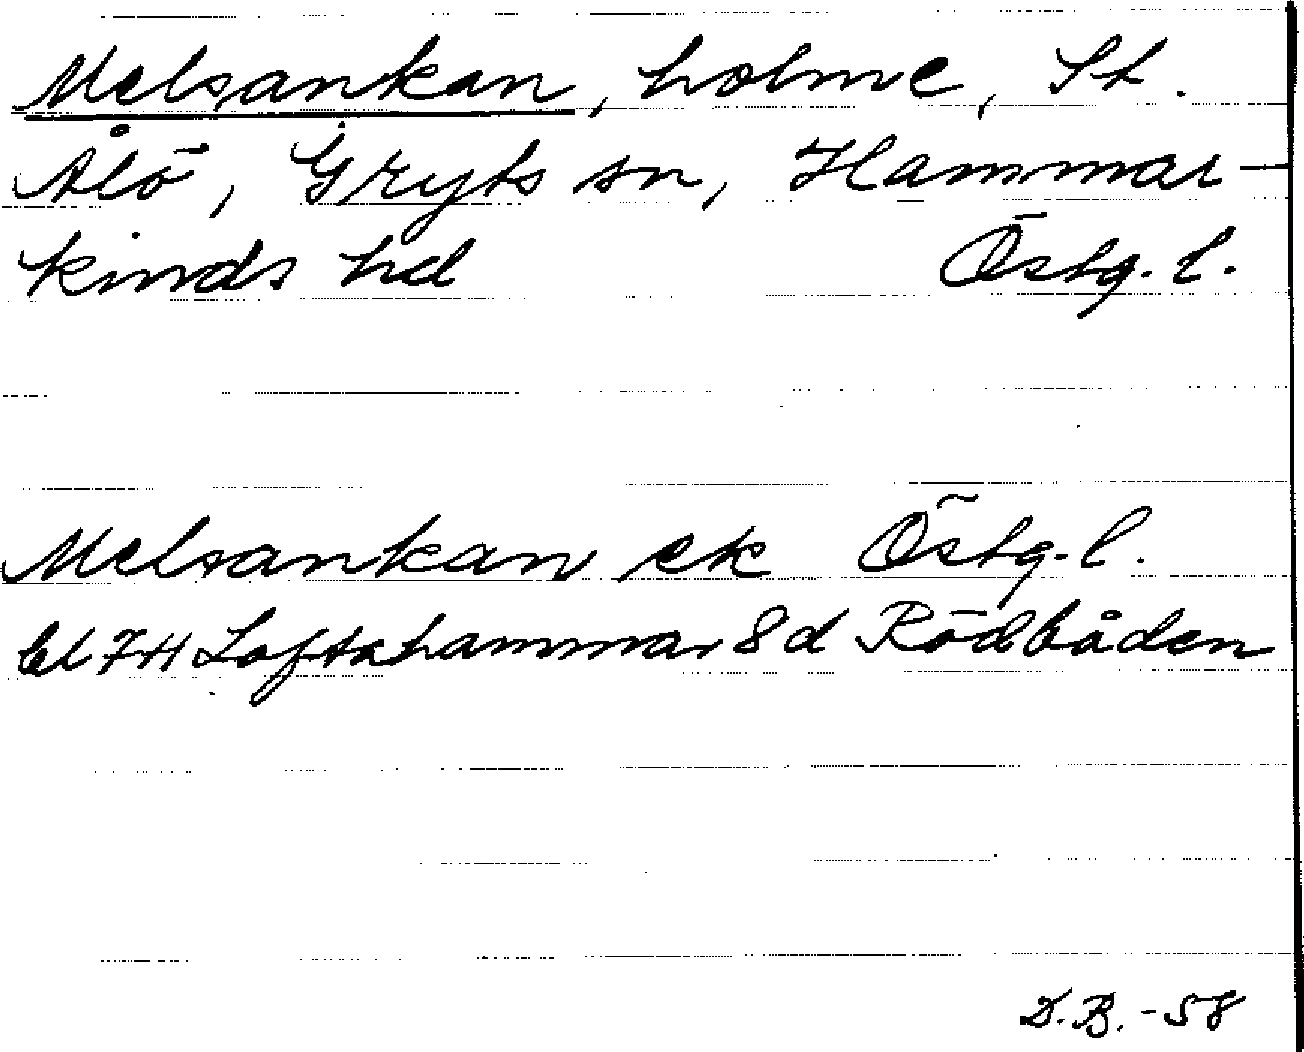 Melsankan, holme, St.
Ålö, Gryts sn, Hammar-
kinds hd Östg. l.
Melsankan ek Östg. l.
bl 7H Loftahammar 8d Rödbåden
D.B. -58